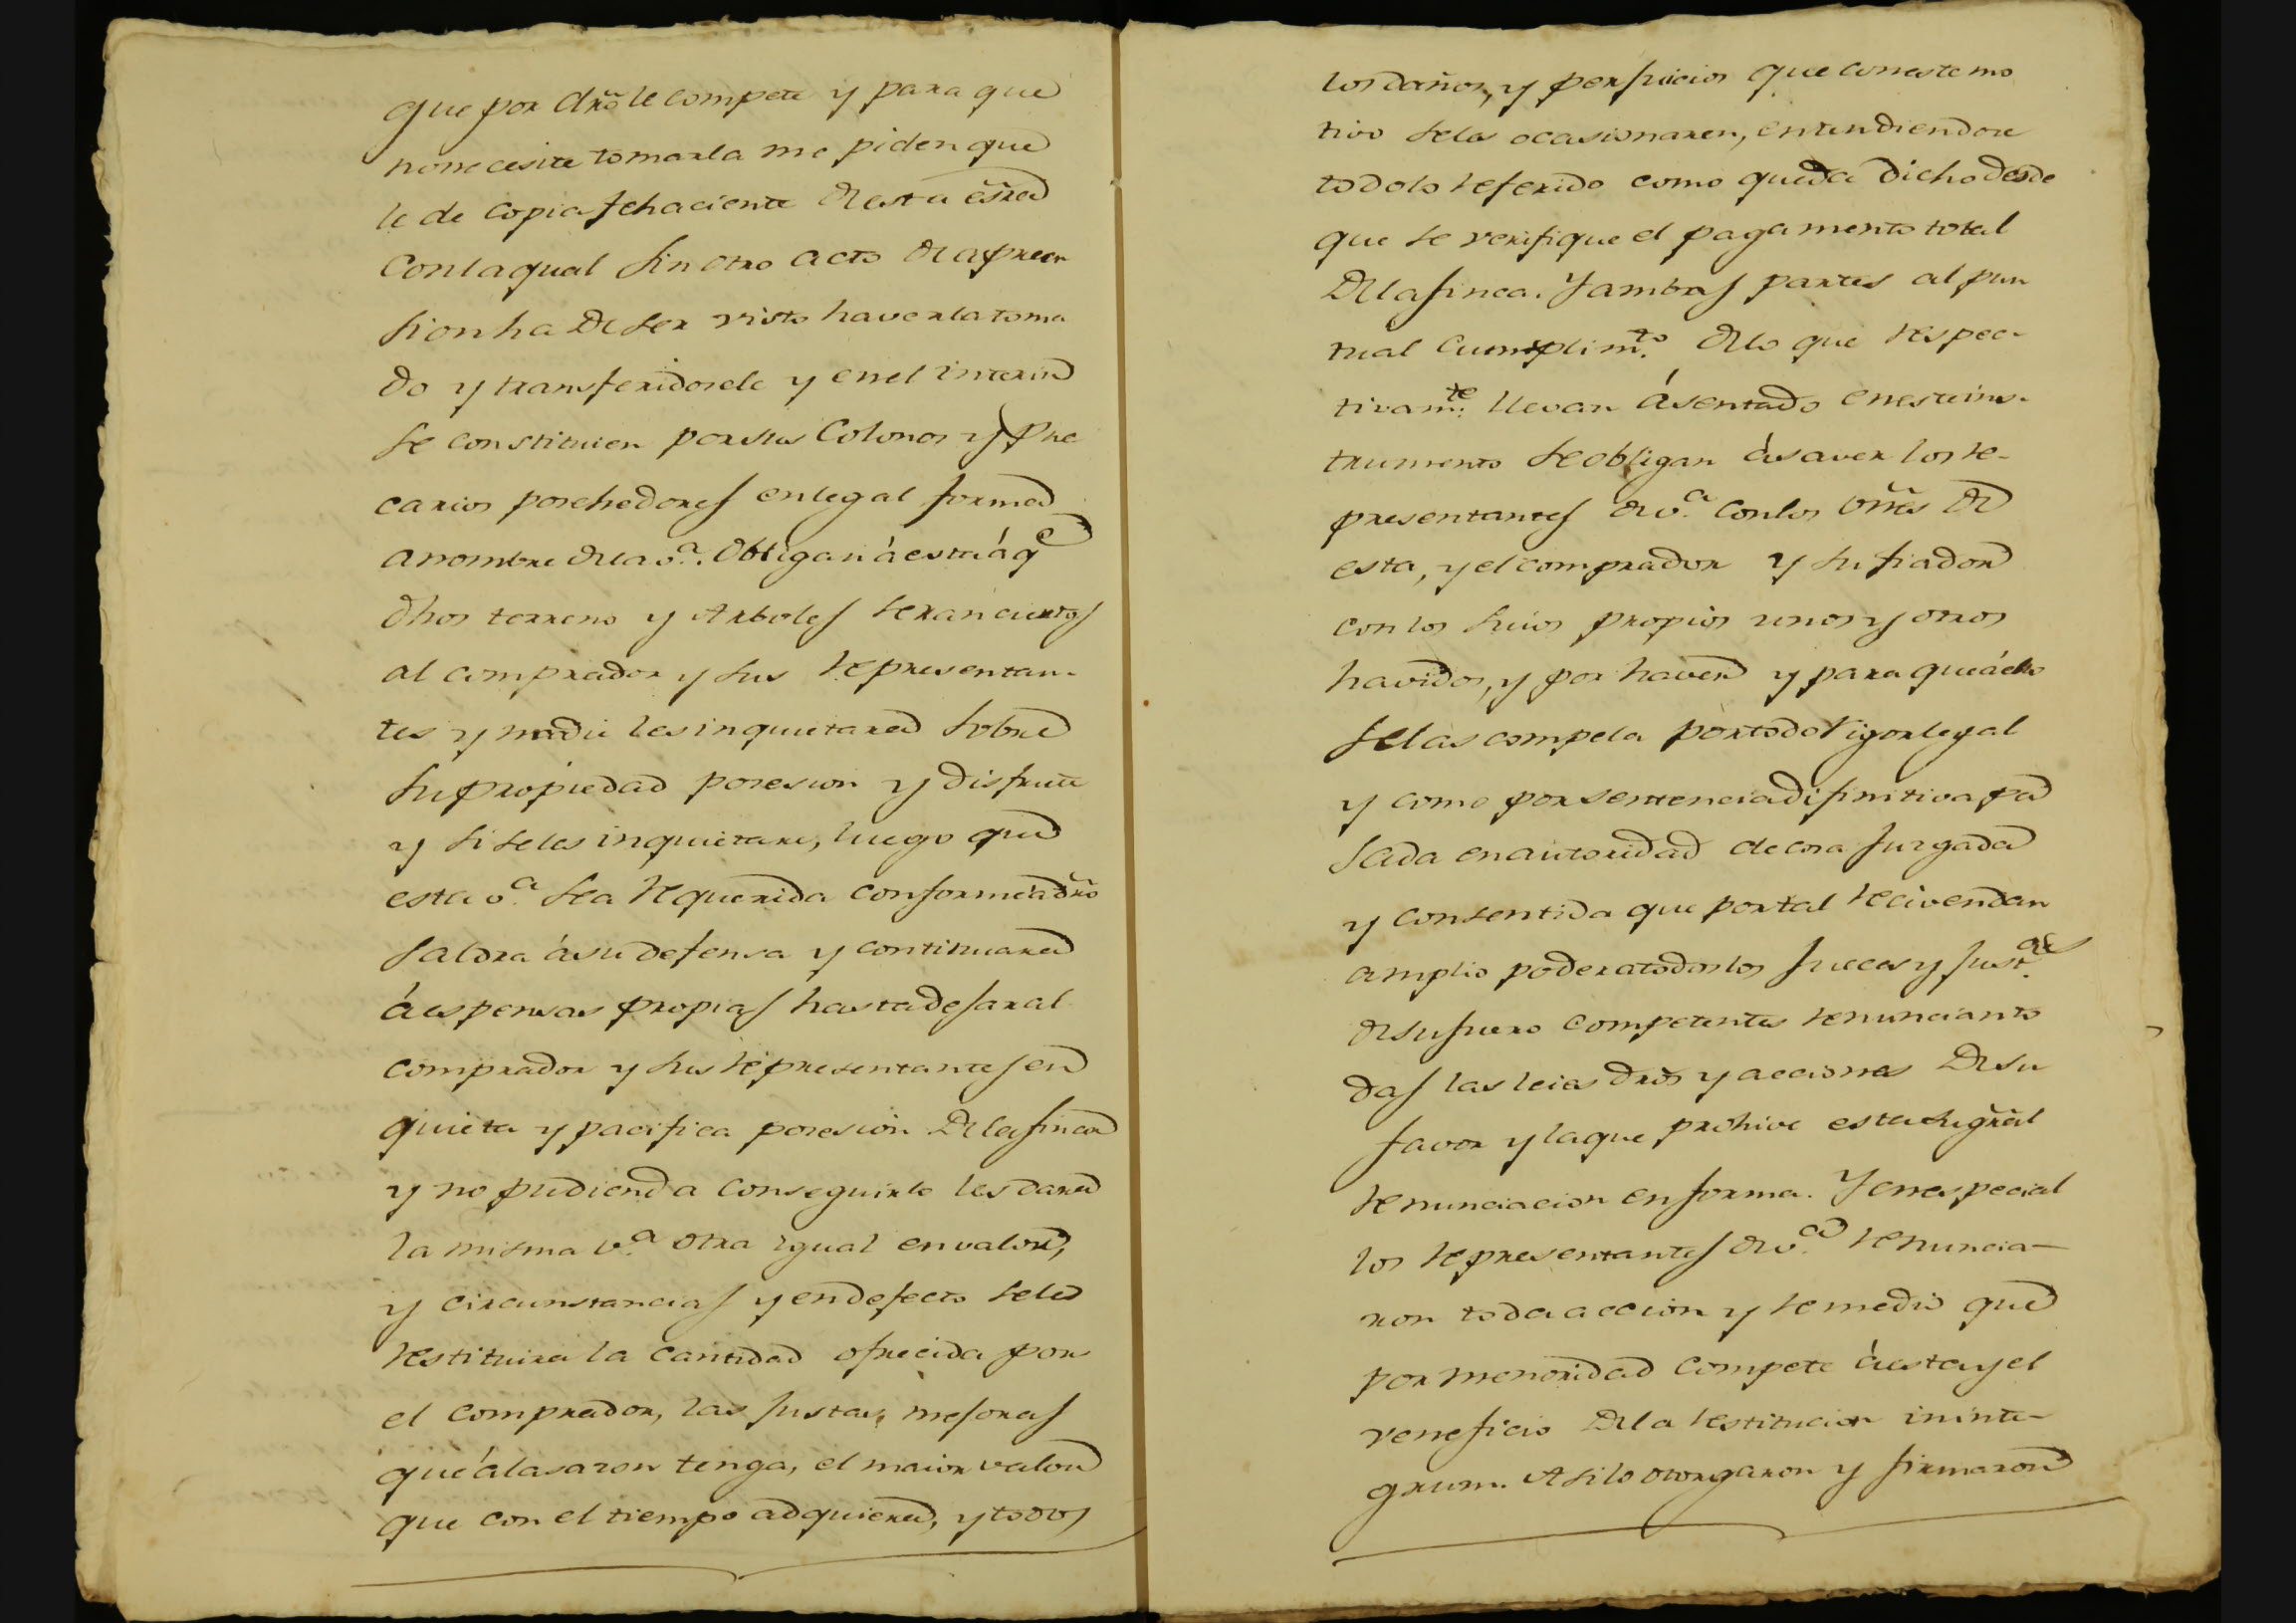 que por dro̅ le compete y para que
no necesite tomarla me piden que
le de copia fehaciente de esta esra̅
con la qual sin otro acto de apreen
sion ha de ser visto haverla toma
do y transferidosele y en el interin
se constituien por sus Colonos y pre
carios poshedores en legal forma
a nombre de la v.ª Obligan á esta á q.e
dhos terreno y Arboles seran ciertos
al comprador y sus representan-
tes y nadie les inquietara sobre
su propiedad posesion y disfrute
y si se les inquietare, luego que
esta v.ª sea requerida conforme a dro̅
saldra á su defensa y continuara
á espensas propias hasta dejar al
comprador y sus representantes en
quieta y pacifica posesion de la finca
y no pudienda conseguirlo les dara
la misma v.ª otra igual en valor,
y circunstancias y en defecto se les
restituira la cantidad ofrecida por
el comprador, las justas, mejoras
que á la sazon tenga, el maior valor
que con el tiempo adquiera, y todos
los daños, y perjuicios que con este mo
tivo se les ocasionaren, entendiendose
todo lo referido como queda dicho desde
que se verifique el pagamento total
de la finca. Y ambas partes al pun
tual cumplim.to de lo que respec-
tivam.te llevan ásentado en este ins-
trumento se obligan á saver los re-
presentantes de v.ª con los vnes̅ de
esta, y el comprador y su fiador
con los suios propios unos y otros
havidos, y por haver y para que á ello
se las compela por todo rigor legal
y como por sentencia difinitiva pa
sada en autoridad de cosa juzgada
y consentida que por tal reciven dan
amplio poder a todos los Jueces y Just.as
de su fuero competentes renuncian to
das las leies dros̅ y acciones de su
favor y la que prohive esta su gral̅
renunciacion en forma. Y en especial
los representantes de v.ª renuncia-
ron toda accion y remedio que
por menoridad compete á esta y el
veneficio de la restitucion in inte-
grum. Asi lo otorgaron y firmaron